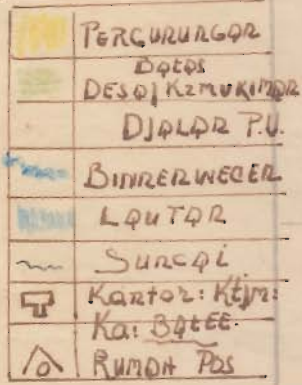 PERGURUNGAR
BATAS
DESA/KEMUKIMAR
DJALAR P.U.
BINNERWEGEN
LAUTAR
SUNGAI
KANTOR: KTJM:
KA: BATEE.
RUMAH POS